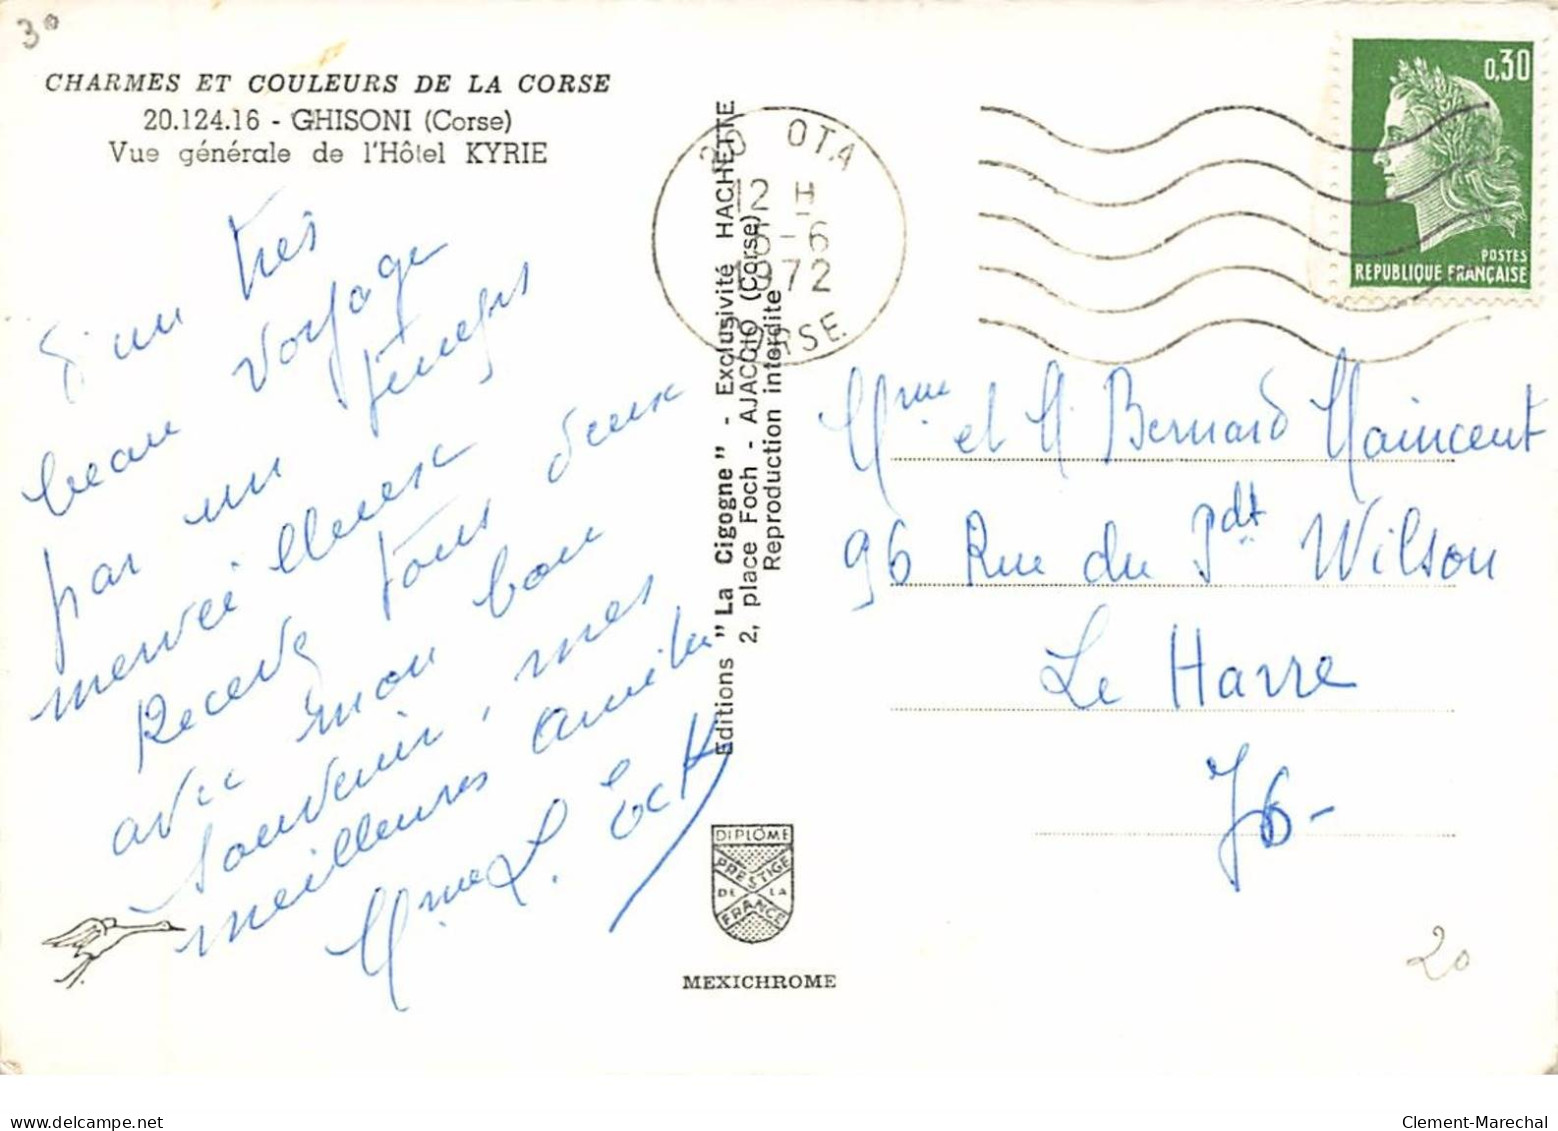 3°
CHARMES ET COULEURS DE LA CORSE
20.124.16 - GHISONI (Corse)
Vue générale de l'Hôtel KYRIE
d'un très
beau voyage
par un temps
merveilleux
Recevez tous deux
avec mon bon
souvenir, mes
meilleures amitiés
Mme L.
Editions "La Cigogne" - Exclusivité HACHETTE
2, place Foch - AJACCIO (Corse)
Reproduction interdite
DIPLÔME
PRESTIGE
DE LA
FRANCE
MEXICHROME
20 OTA
12 H
-6
1972
CORSE
0,30
POSTES
REPUBLIQUE FRANÇAISE
Mme et M. Bernard Maincent
96 Rue du Pdt Wilson
Le Havre
76-
20
www.delcampe.net
Clement-Marechal